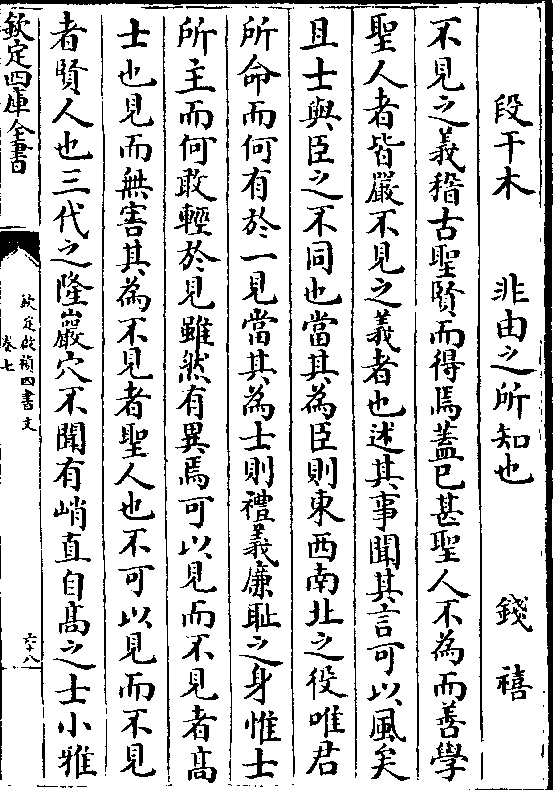 段干木　非由之所知也　錢禧
不見之義稽古聖賢而得焉蓋已甚聖人不為而善學
聖人者皆嚴不見之義者也述其事聞其言可以風矣
且士與臣之不同也當其為臣則東西南北之役唯君
所命而何有於一見當其為士則禮義廉恥之身惟士
所主而何敢輕於見雖然有異焉可以見而不見者髙
士也見而無害其為不見者聖人也不可以見而不見
者賢人也三代之隆巖穴不聞有峭直自髙之士小雅
欽定四庫全書
欽定啟禎四書文
卷七
六十八